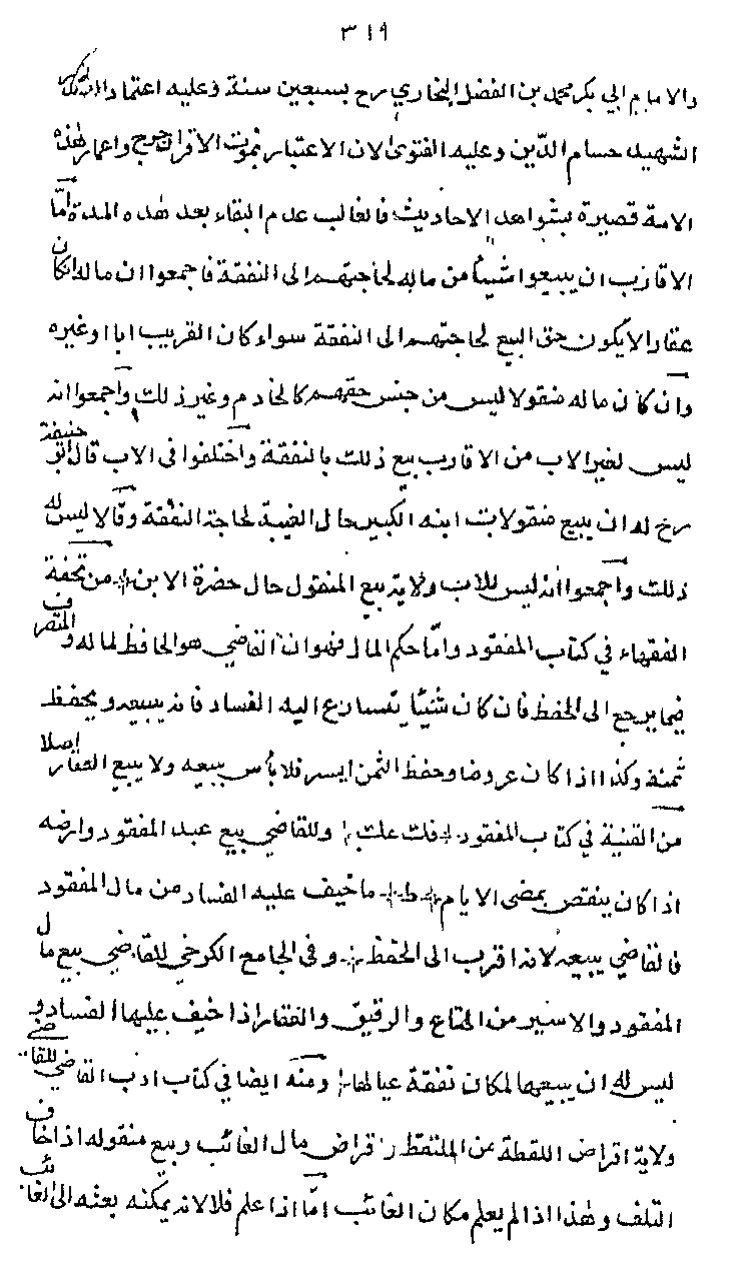 ٣١٩
والامام ابي بكر محمد بن الفضل البخاري رح بسبعين سنة وعليه اعتماد
الشهيد حسام الدين وعليه الفتوى لان الاعتبار بموت الاقران حرج واعمار هذه
الامة قصيرة بشواهد الاحاديث فالغالب عدم البقاء بعد هذه المدة امّا
الاقارب ان يبيعوا شيئا من ماله لحاجتهم الى النفقة فاجمعوا ان ماله ان كان
عقارا لا يكون حق البيع لحاجتهم الى النفقة سواء كان القريب ابا او غيره
وان كان ماله منقولا ليس من جنس حقهم كالخادم وغير ذلك واجمعوا انه
ليس لغير الاب من الاقارب بيع ذلك بالنفقة واختلفوا في الاب قال ابو حنيفة
رح له ان يبيع منقولات ابنه الكبير حال الغيبة لحاجة النفقة وقالا ليس له
ذلك واجمعوا انه ليس للاب ولاية بيع المنقول حال حضرة الابن من تحفة
الفقهاء في كتاب المفقود وامّا حكم المال فهو ان القاضي هو الحافظ لماله والمتصرف
فيما يرجع الى الحفظ فان كان شيئا يتسارع اليه الفساد فانه يبيعه ويحفظ
ثمنه وكذا اذا كان عروضا وحفظ الثمن ايسر فلا بأس ببيعه ولا يبيع العقار اصلا
من القنية في كتاب المفقود فلت علت وللقاضي بيع عبد المفقود وارضه
اذا كان ينتقص بمضى الايام ط ما خيف عليه الفساد من مال المفقود
فالقاضي يبيعه لانه اقرب الى الحفظ وفى الجامع الكرخي للقاضي بيع مال
المفقود والاسير من المتاع والرقيق والعقار اذا خيف عليها الفساد و
ليس له ان يبيعها لمكان نفقة عيالها ومنه ايضا في كتاب ادب القاضي للقاضي
ولاية اقراض اللقطة من الملتقط واقراض مال الغائب وبيع منقوله اذا خاف
التلف وهذا اذا لم يعلم مكان الغائب امّا اذا علم فلا لانه يمكنه بعثه الى الغائب